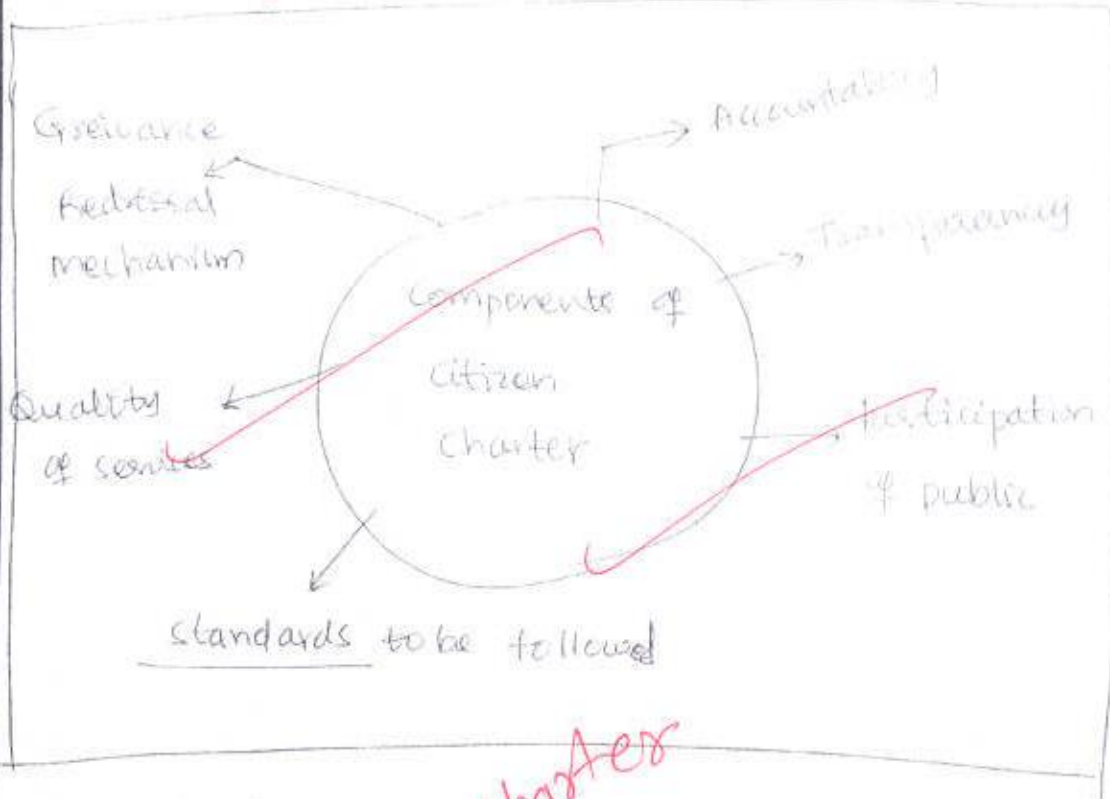 Greivance
Redressal
mechanism
Accountability
Transparency
Components of
Citizen
Charter
Quality
of services
Participation
of public
standards to be followed
charter